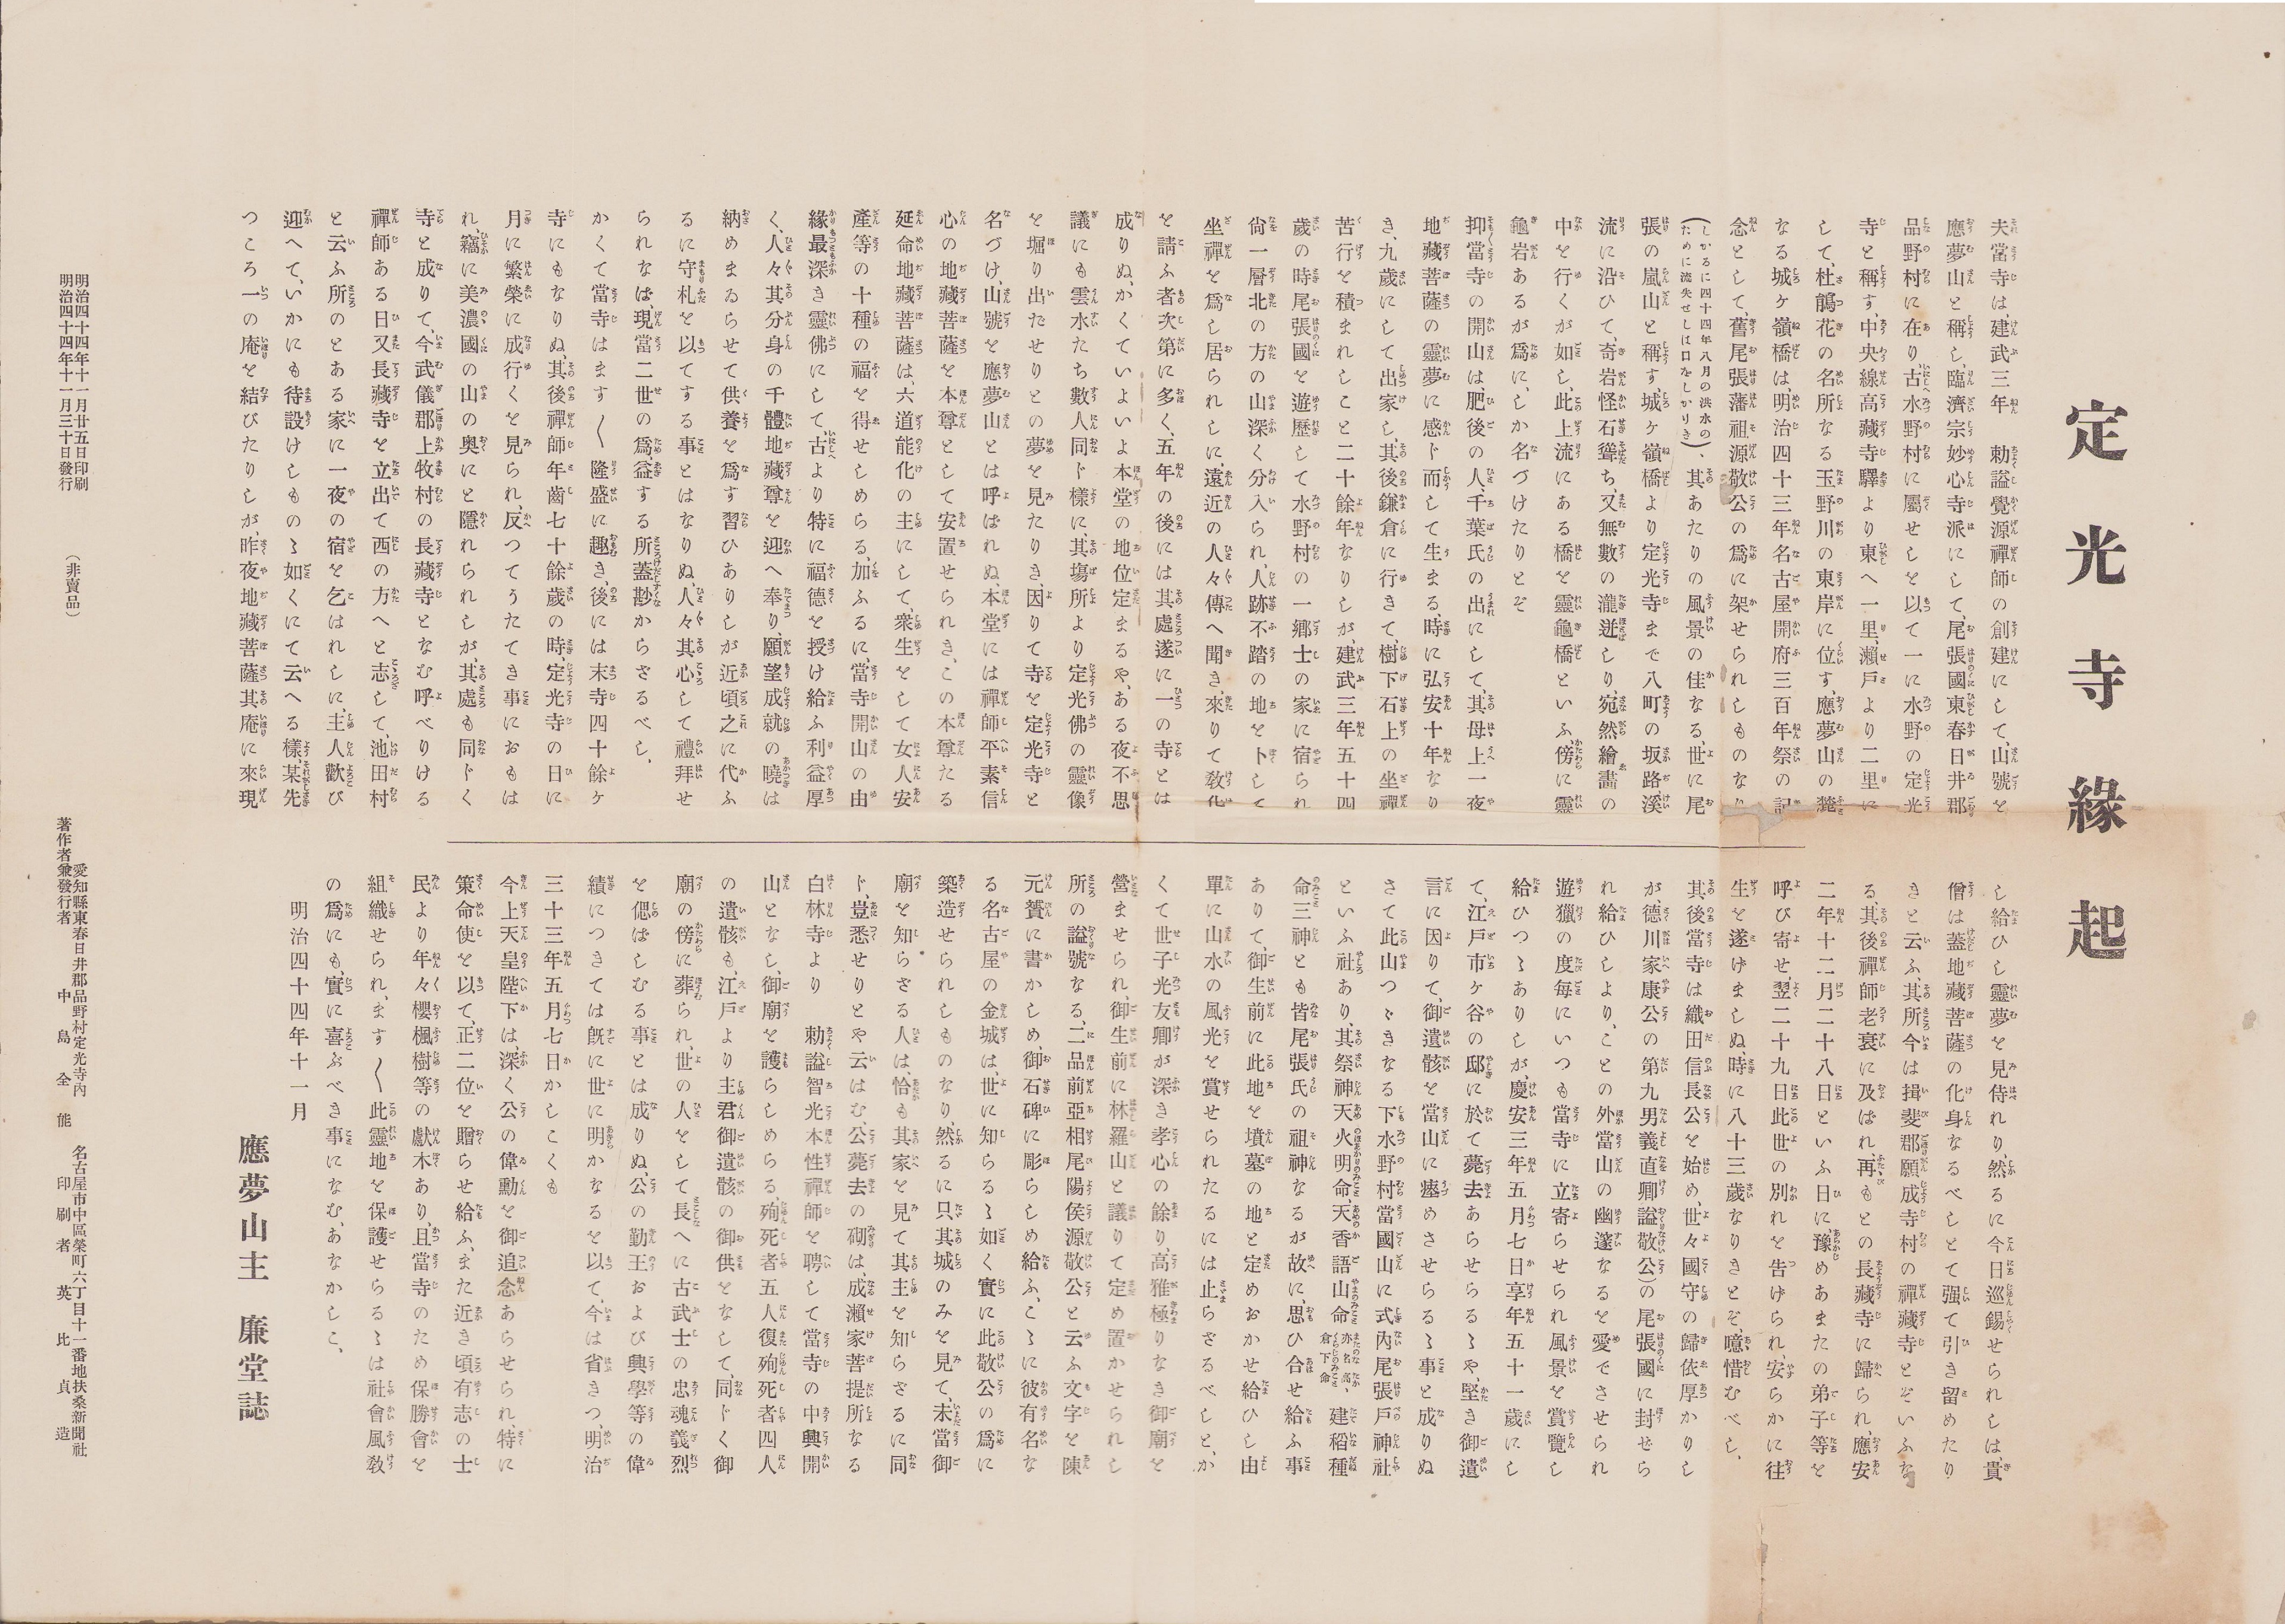 定光寺緣起
夫當寺は、建武三年　勅諡覺源禪師の創建にして、山號を
應夢山と稱し、臨濟宗妙心寺派にして、尾張國東春日井郡
品野村に在り、古水野村に屬せしを以て一に水野の定光
寺と稱す、中央線高藏寺驛より東へ一里、瀨戸より二里に
して、杜鵑花の名所なる玉野川の東岸に位す、應夢山の麓
なる城ヶ嶺橋は、明治四十三年名古屋開府三百年祭の記
念として、舊尾張藩祖源敬公の爲に架せられしものなり
（しかるに四十四年八月の洪水の
ために流失せしは口をしかりき）、其あたりの風景の佳なる、世に尾
張の嵐山と稱す、城ヶ嶺橋より定光寺まで八町の坂路溪
流に沿ひて、奇岩怪石聳ち、又無數の瀧迸しり、宛然繪畵の
中を行くが如し、此上流にある橋を靈龜橋といふ、傍に靈
龜岩あるが爲に、しか名づけたりとぞ
抑當寺の開山は、肥後の人、千葉氏の出にして、其母上一夜
地藏菩薩の靈夢に感ㄕ而して生まる、時に弘安十年なり
き、九歲にして出家し、其後鎌倉に行きて、樹下石上の坐禪
苦行を積まれしこと二十餘年なりしが、建武三年五十四
歲の時尾張國を遊歷して水野村の一鄕士の家に宿られ
尙一層北の方の山深く分入られ、人跡不踏の地を卜して
坐禪を爲し居られしに、遠近の人々傳へ聞き、來りて敎化
を請ふ者次第に多く、五年の後には其處遂に一の寺とは
成りぬ、かくていよいよ本堂の地位定まるや、ある夜不思
議にも雲水たち數人同じ樣に、其塲所より定光佛の靈像
を堀り出たせりとの夢を見たりき、因りて寺を定光寺と
名づけ、山號を應夢山とは呼ばれぬ、本堂には禪師平素信
心の地藏菩薩を本尊として安置せられき、この本尊たる
延命地藏菩薩は、六道能化の主にして、衆生をして女人安
產等の十種の福を得せしめらる、加ふるに、當寺開山の由
緣最深き靈佛にして、古より特に福德を授け給ふ利益厚
く、人々其分身の千體地藏尊を迎へ奉り、願望成就の曉は
納めまゐらせて供養を爲す習ひありしが近頃之に代ふ
るに守札を以てする事とはなりぬ、人々其心して禮拜せ
られなば、現當二世の爲、益する所蓋尠からざるべし、
かくて當寺はます〱隆盛に趣き、後には末寺四十餘ヶ
寺にもなりぬ、其後禪師年齒七十餘歲の時、定光寺の日に
月に繁榮に成行くを見られ、反つてうたてき事におもは
れ、竊に美濃國の山の奧にと隱れられしが、其處も同じく
寺と成りて、今武儀郡上牧村の長藏寺となむ呼べりける
禪師ある日又長藏寺を立出て西の方へと志して、池田村
と云ふ所のとある家に一夜の宿を乞はれしに、主人歡び
迎へて、いかにも待設けしものゝ如くにて云へる樣、某先
つころ一の庵を結びたりしが、昨夜地藏菩薩其庵に來現
し給ひし靈夢を見侍れり、然るに今日巡錫せられしは、貴
僧は蓋地藏菩薩の化身なるべしとて强て引き留めたり
きと云ふ、其所今は揖斐郡願成寺村の禪藏寺とぞいふな
る、其後禪師老衰に及ばれ、再もとの長藏寺に歸られ、應安
二年十二月二十八日といふ日に、豫めあまたの弟子等を
呼び寄せ、翌二十九日此世の別れを告げられ、安らかに往
生を遂げましぬ、時に八十三歲なりきとぞ、噫惜むべし、
其後當寺は織田信長公を始め、世々國守の歸依厚かりし
が、德川家康公の第九男義直卿（諡敬公）の尾張國に封せら
れ給ひしより、ことの外當山の幽邃なるを愛でさせられ
遊獵の度每にいつも當寺に立寄らせられ風景を賞覽し
給ひつゝありしが、慶安三年五月七日享年五十一歲にし
て、江戸市ヶ谷の邸に於て薨去あらせらるゝや、堅き御遺
言に因りて、御遺骸を當山に瘞めさせらるゝ事と成りぬ
さて此山つゞきなる下水野村當國山に式內尾張戸神社
といふ社あり、其祭神天火明命、天香語山命（亦名高倉下命）、建稻種
命三神とも皆尾張氏の祖神なるが故に、思ひ合せ給ふ事
ありて、御生前に此地を墳墓の地と定めおかせ給ひし由
單に山水の風光を賞せられたるには止らざるべしと、か
くて世子光友卿が深き孝心の餘り、高雅極りなき御廟を
營ませられ、御生前に林羅山と議りて定め置かせられし
所の諡號なる、二品前亞相尾陽侯源敬公と云ふ文字を陳
元贇に書かしめ、御石碑に彫らしめ給ふ、こゝに彼有名な
る名古屋の金城は、世に知らるゝ如く實に此敬公の爲に
築造せられしものなり、然るに只其城のみを見て、未當御
廟を知らざる人は、恰も其家を見て其主を知らざるに同
じ、豈悉せりとや云はむ、公薨去の砌は、成瀨家菩提所なる
白林寺より　勅諡智光本性禪師を聘して當寺の中興開
山となし、御廟を護らしめらる、殉死者五人復殉死者四人
の遺骸も、江戸より主君御遺骸の御供をなして、同じく御
廟の傍に葬られ、世の人をして長へに古武士の忠魂義烈
を偲ばしむる事とは成りぬ、公の勤王および興學等の偉
績につきては旣に世に明かなるを以て、今は省きつ、明治
三十三年五月七日かしこくも
今上天皇陛下は、深く公の偉勳を御追念あらせられ、特に
策命使を以て、正二位を贈らせ給ふ、また近き頃有志の士
民より年々櫻楓樹等の獻木あり、且當寺のため保勝會を
組織せられ、ます〱此靈地を保護せらるゝは社會風敎
の爲にも、實に喜ぶべき事になむ、あなかしこ、
明治四十四年十一月
應夢山主　廉堂誌
明治四十四年十一月廿五日印刷
明治四十四年十一月三十日發行
（非賣品）
愛知縣東春日井郡品野村定光寺內
著作者兼發行者　中島全能
名古屋市中區榮町六丁目十一番地扶桑新聞社
印刷者　英比貞造